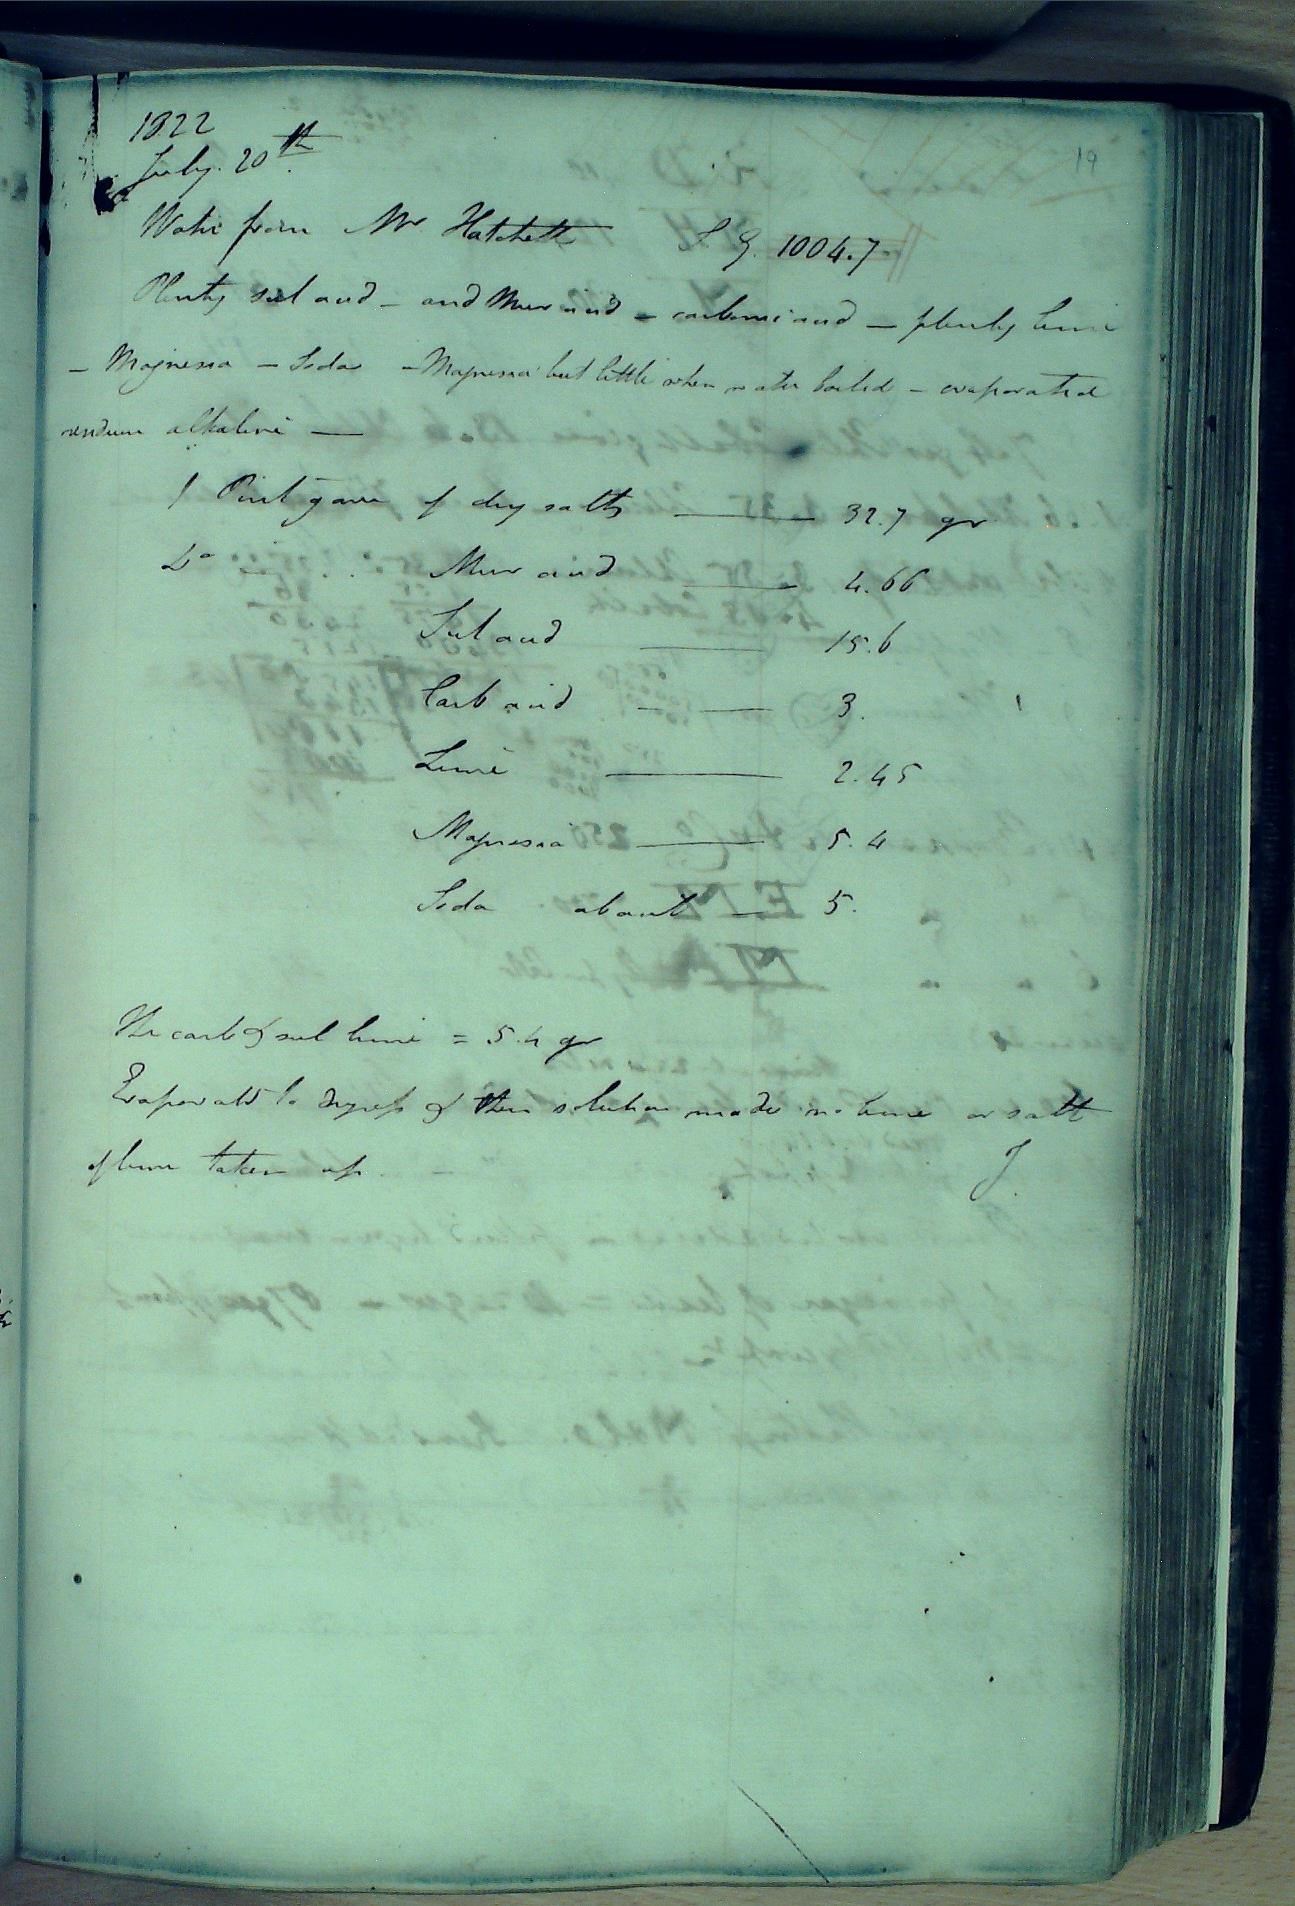 1822
July. 20th
19
Water from Mr Hatchett S. G. 1004.7.
Plenty sul acid - and Mur acid - carbonic acid - plenty lime
- Magnesia - Soda - Magnesia but little when water boiled - evaporated
residuum alkaline —
1 Pint gave of dry salts — 32.7 gr
Do in . . Mur acid — 4.66
Sul acid — 15.6
Carb acid — 3.
Lime — 2.45
Magnesia — 5.4
Soda about — 5.
The carb & sul lime = 5.4 gr
Evaporated to dryness & then solution made no lime or salt
of lime taken up.